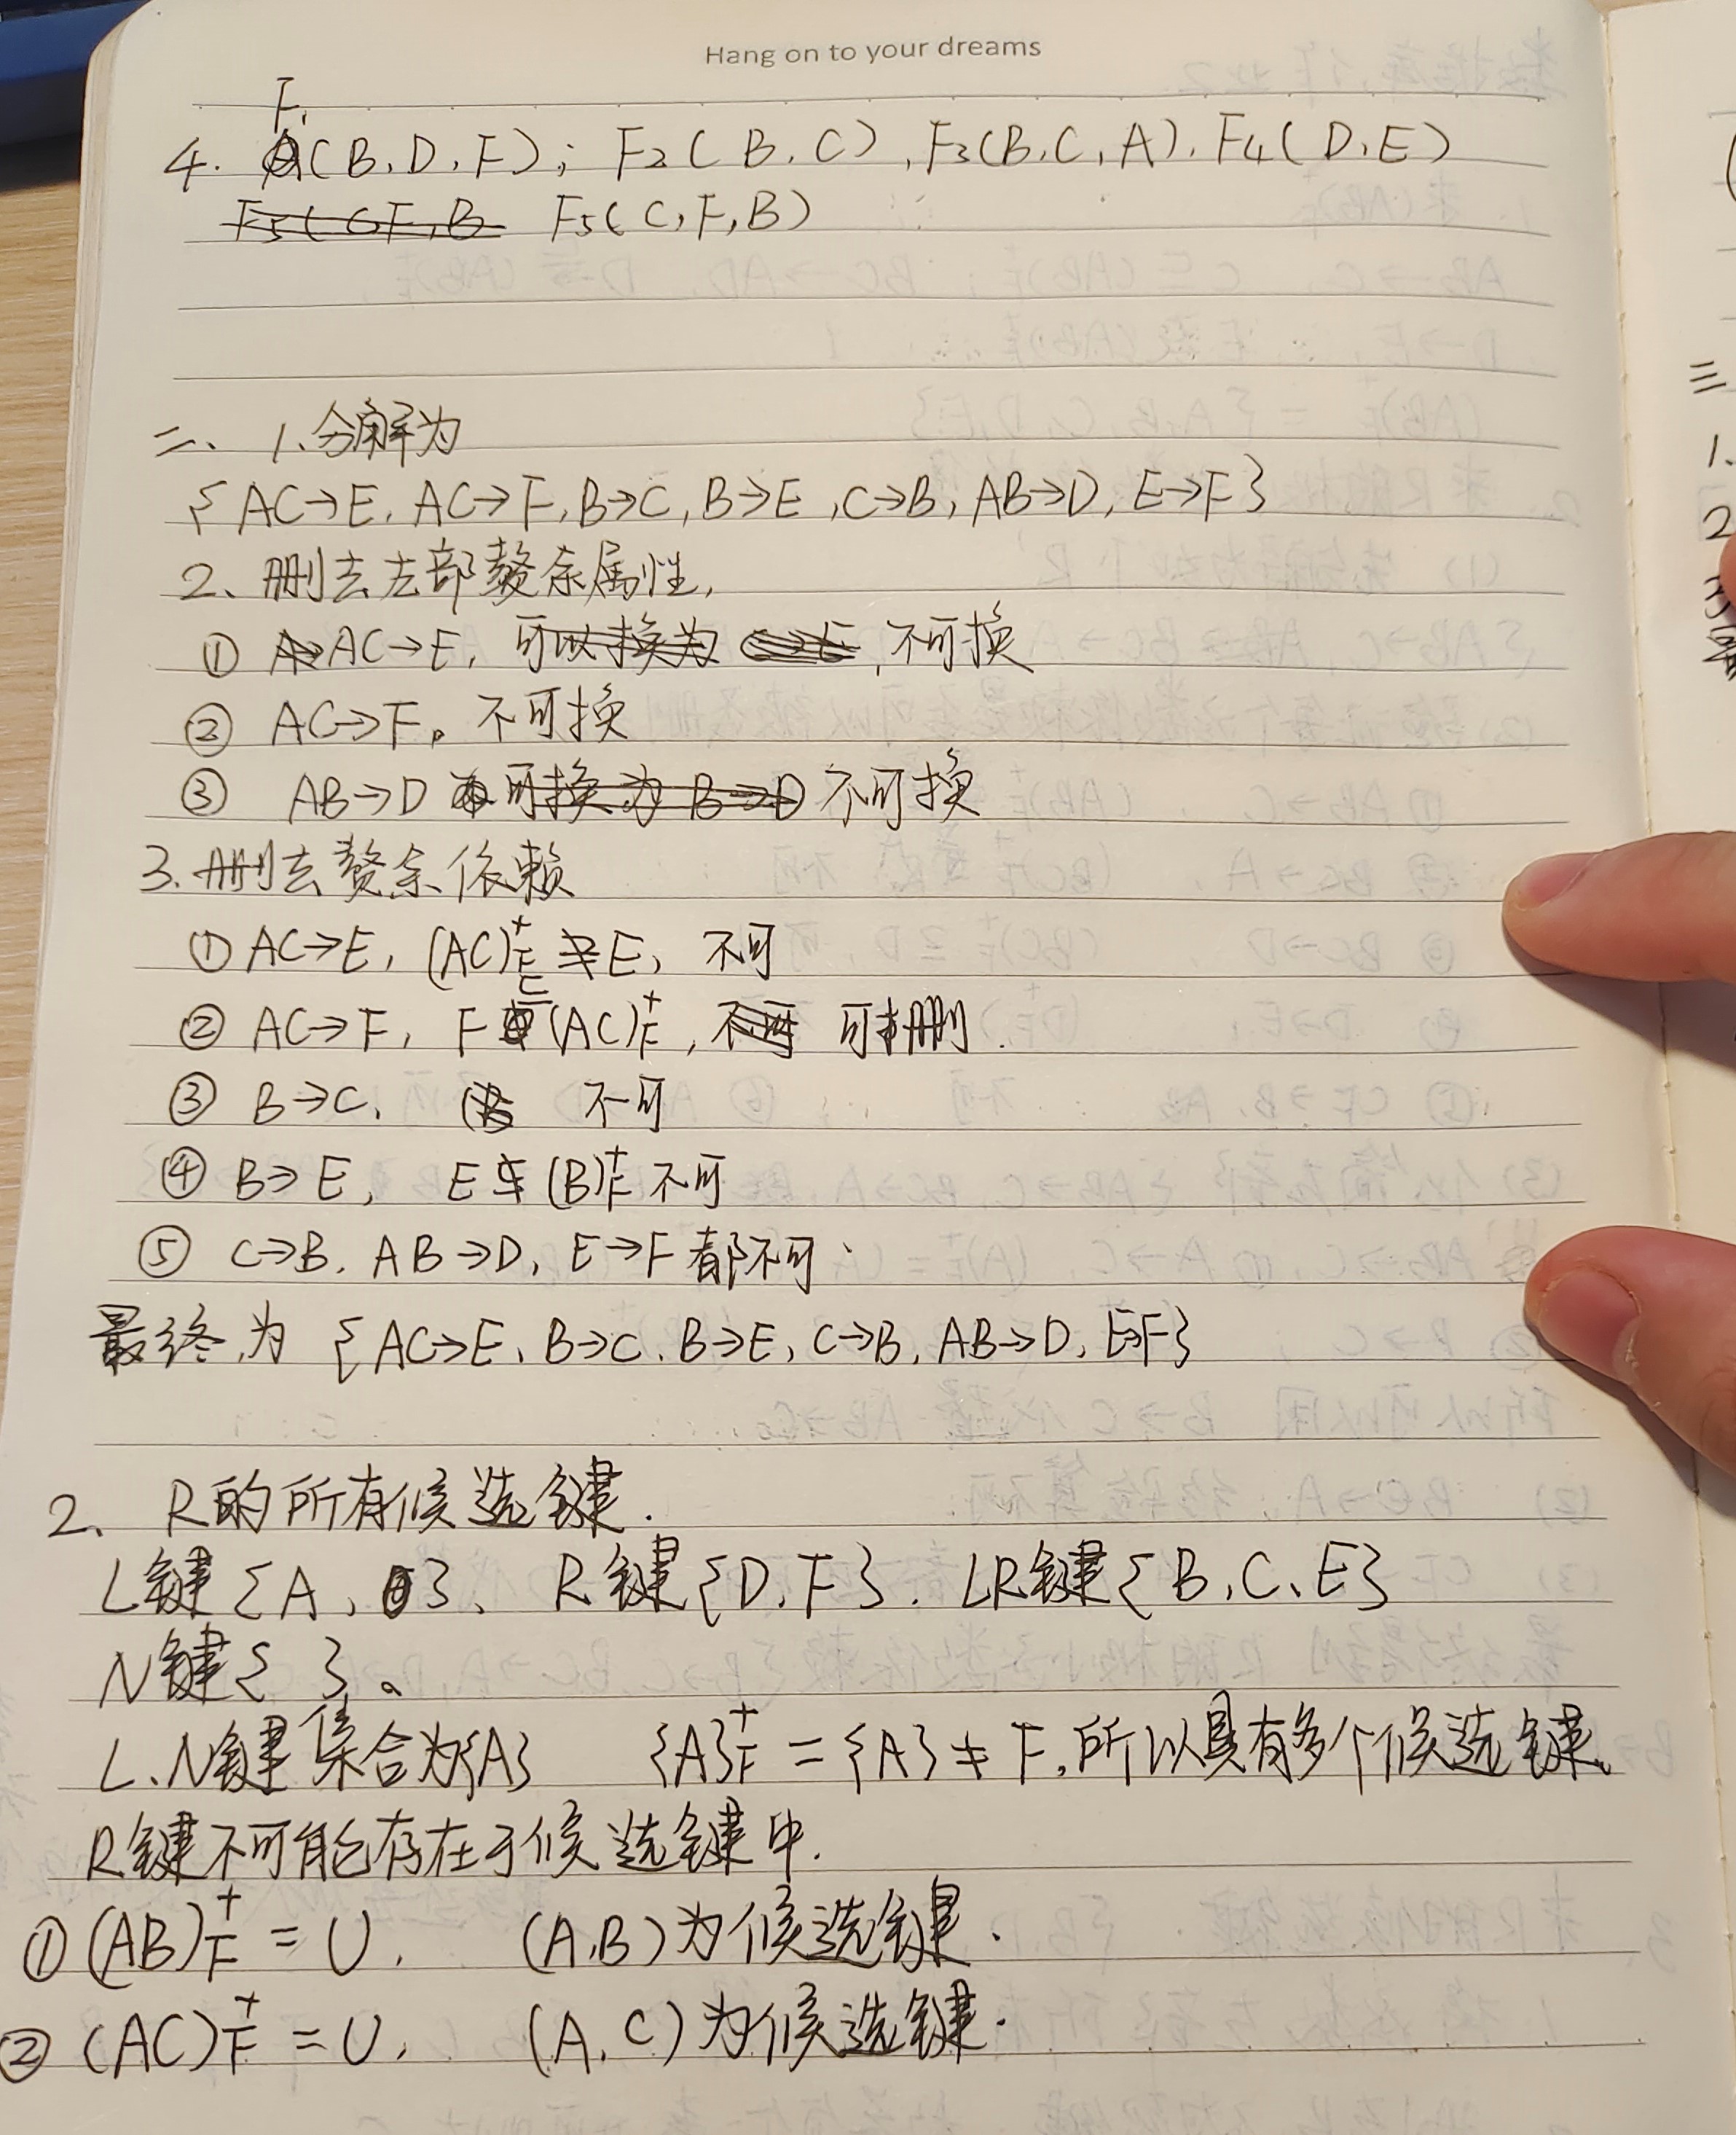 Hang on to your dreams
4. F₁(B,D,F); F₂(B,C), F₃(B,C,A). F₄(D,E)
F₅(C,F,B)
二、1、分解为
{AC→E, AC→F, B→C, B→E, C→B, AB→D, E→F}
2、删去左部赘余属性,
① AC→E, 不可换
② AC→F。不可换
③ AB→D 不可换
3.删去赘余依赖
① AC→E, (AC)⁺F ∌ E, 不可
② AC→F, F ∈ (AC)⁺F, 可删.
③ B→C, 不可
④ B→E, E ∉ (B)⁺F 不可
⑤ C→B, AB→D, E→F 都不可.
最终为 {AC→E, B→C, B→E, C→B, AB→D, E→F}
2、R的所有候选键.
L键{A}、R键{D,F}. LR键{B,C、E}
N键{ }。
L、N键集合为{A} {A}⁺F = {A} ≠ F,所以具有多个候选键、
R键不可能存在于候选键中.
① (AB)⁺F = U, (A,B)为候选键.
② (AC)⁺F = U, (A,C)为候选键.
三
1.
2